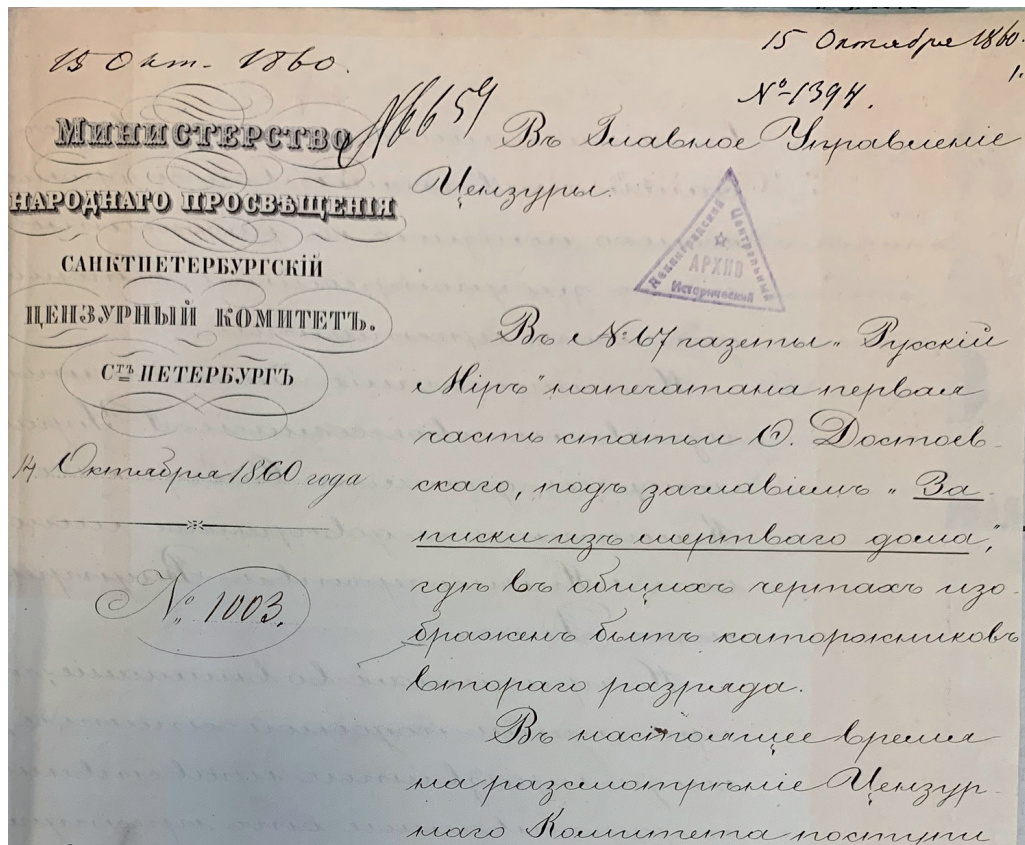 15 Окт. 1860.
15 Октября 1860.
№ 1394.
№ 659
МИНИСТЕРСТВО
НАРОДНАГО ПРОСВѢЩЕНІЯ
САНКТПЕТЕРБУРГСКІЙ
ЦЕНЗУРНЫЙ КОМИТЕТЪ.
СТЪ ПЕТЕРБУРГЪ
14 Октября 1860 года
№ 1003.
Въ Главное Управленіе
Цензуры.
Ленинградский Центральный
АРХИВ
Исторический
Въ № 67 газеты „Русскій
Міръ“ напечатана первая
часть статьи Ѳ. Достоев-
скаго, подъ заглавіемъ „За-
писки изъ мертваго дома“,
гдѣ въ общихъ чертахъ изо-
браженъ бытъ каторжниковъ
втораго разряда.
Въ настоящее время
на разсмотрѣніе Цензур-
наго Комитета поступи